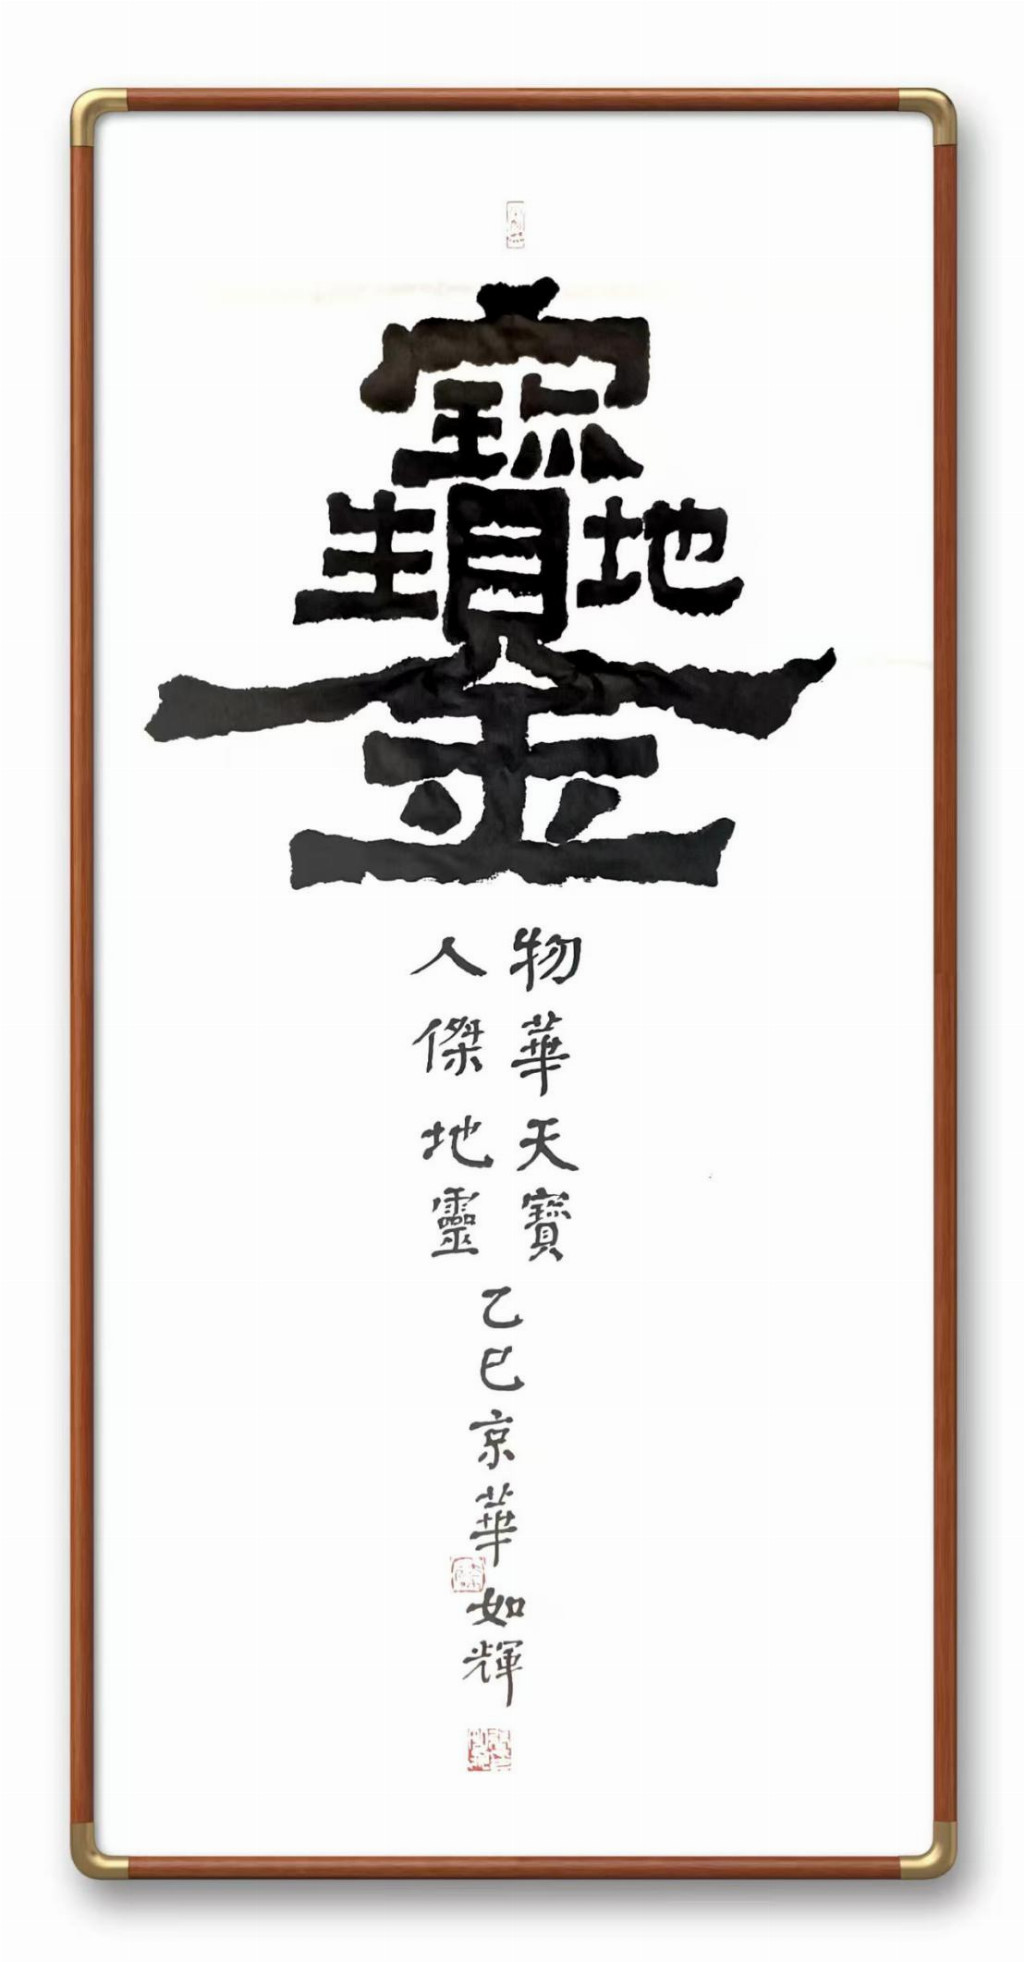 寳地生金
物華天寳
人傑地靈
乙巳京華如輝